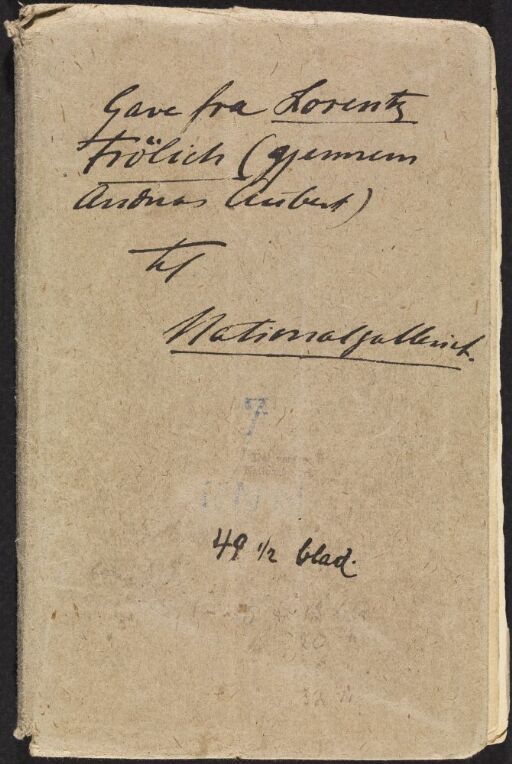 Gave fra Lorentz
Frölich (gjennem
Andreas Aubert)
til
Nationalgalleriet.
7
49 1/2 blad.